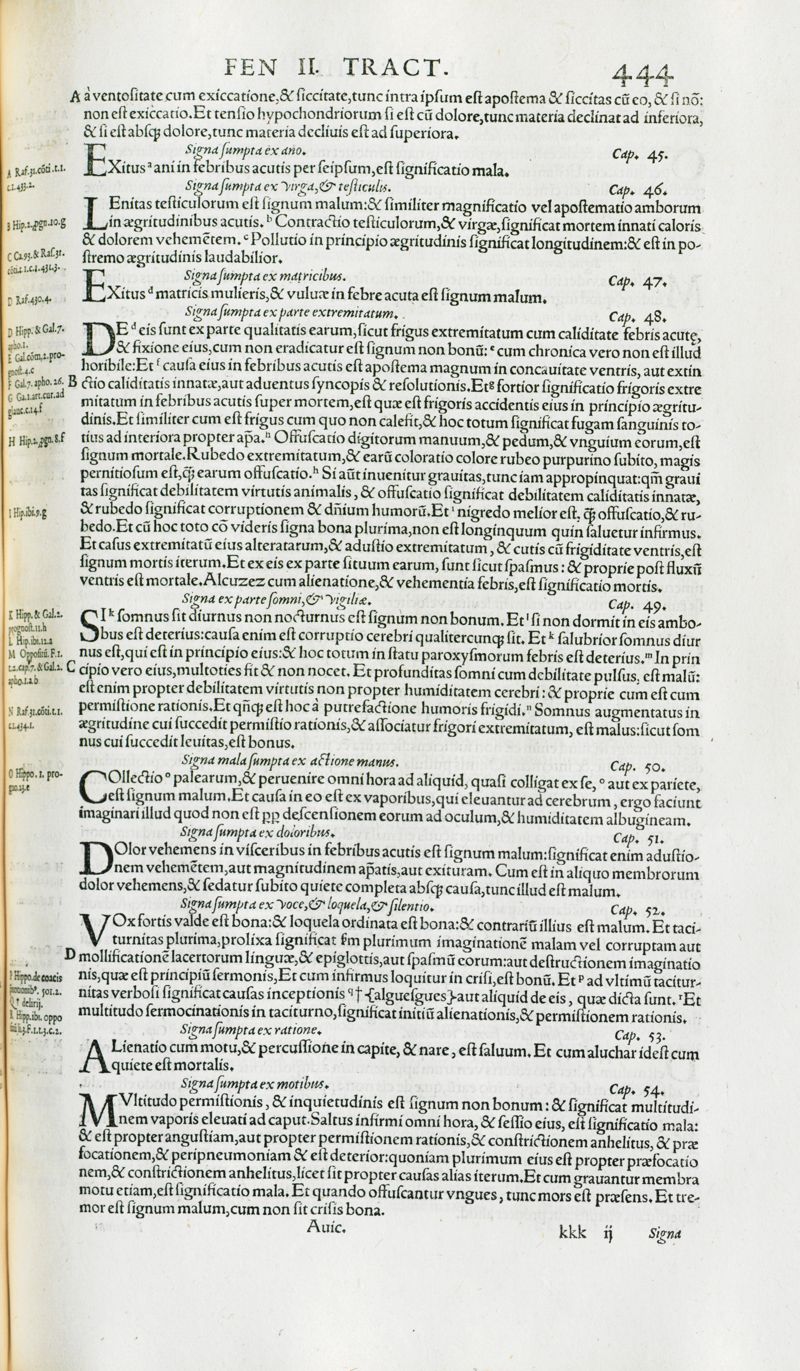 FEN II. TRACT. 444
A à ventositate cum exiccatione,& siccitate,tunc intra ipsum est apostema & siccitas cū eo, & si nō:
non est exiccatio.Et tensio hypochondriorum si est cū dolore,tunc materia declinat ad inferiora,
& si est absq; dolore,tunc materia decliuis est ad superiora.
Signa sumpta ex ano. Cap. 45.
EXitus ᵃ ani in febribus acutis per seipsum,est significatio mala.
Signa sumpta ex virga,& testiculis. Cap. 46.
LEnitas testiculorum est signum malum:& similiter magnificatio vel apostematio amborum
in ægritudinibus acutis. ᵇ Contractio testiculorum,& virgæ,significat mortem innati caloris
& dolorem vehemētem. ᶜ Pollutio in principio ægritudinis significat longitudinem:& est in po-
stremo ægritudinis laudabilior.
Signa sumpta ex matricibus. Cap. 47.
EXitus ᵈ matricis mulieris,& vuluæ in febre acuta est signum malum.
Signa sumpta ex parte extremitatum. Cap. 48.
DE ᵈ eis sunt ex parte qualitatis earum,sicut frigus extremitatum cum caliditate febris acute,
& fixione eius,cum non eradicatur est signum non bonū: ᵉ cum chronica vero non est illud
horibile:Et ᶠ causa eius in febribus acutis est apostema magnum in concauitate ventris, aut extin
B ctio caliditatis innatæ,aut aduentus syncopis & resolutionis.Etᵍ fortior significatio frigoris extre
mitatum in febribus acutis super mortem,est quæ est frigoris accidentis eius in principio ægritu-
dinis.Et similiter cum est frigus cum quo non calefit,& hoc totum significat fugam sanguinis to-
tius ad interiora propter ap̄a. ʰ Offuscatio digitorum manuum,& pedum,& vnguium eorum,est
signum mortale.Rubedo extremitatum,& earū coloratio colore rubeo purpurino subito, magis
pernitiosum est,q̄; earum offuscatio. ʰ Si aūt inuenitur grauitas,tunc iam appropinquat:qm̄ graui
tas significat debilitatem virtutis animalis, & offuscatio significat debilitatem caliditatis innatæ,
& rubedo significat corruptionem & dn̄ium humorū.Et ⁱ nigredo melior est, q̄; offuscatio,& ru-
bedo.Et cū hoc toto cō videris signa bona plurima,non est longinquum quin saluetur infirmus.
Et casus extremitatū eius alteratarum,& adustio extremitatum , & cutis cū frigiditate ventris,est
signum mortis iterum.Et ex eis ex parte situum earum, sunt sicut spasmus : & proprie post fluxū
ventris est mortale.Alcuzez cum alienatione,& vehementia febris,est significatio mortis.
Signa ex parte somni,& vigiliæ. Cap. 49.
SI ᵏ somnus sit diurnus non nocturnus est signum non bonum. Et ˡ si non dormit in eis ambo-
bus est deterius:causa enim est corruptio cerebri qualitercunq; sit. Et ᵏ salubrior somnus diur
nus est,qui est in principio eius:& hoc totum in statu paroxysmorum febris est deterius. ᵐ In prin
C cipio vero eius,multoties fit & non nocet. Et profunditas somni cum debilitate pulsus, est malū:
est enim propter debilitatem virtutis non propter humiditatem cerebri : & proprie cum est cum
permistione rationis. Et qn̄q; est hoc à putrefactione humoris frigidi. ⁿ Somnus augmentatus in
ægritudine cui succedit permistio rationis,& associatur frigori extremitatum, est malus:sicut som
nus cui succedit leuitas,est bonus.
Signa mala sumpta ex actione manus. Cap. 50.
COllectio ᵒ palearum,& peruenire omni hora ad aliquid, quasi colligat ex se, ᵒ aut ex pariete,
est signum malum.Et causa in eo est ex vaporibus,qui eleuantur ad cerebrum , ergo faciunt
imaginari illud quod non est pp̄ descensionem eorum ad oculum,& humiditatem albugineam.
Signa sumpta ex doloribus. Cap. 51.
DOlor vehemens in visceribus in febribus acutis est signum malum:significat enim adustio-
nem vehemētem,aut magnitudinem ap̄atis,aut exituram. Cum est in aliquo membrorum
dolor vehemens,& sedatur subito quiete completa absq; causa,tunc illud est malum.
Signa sumpta ex voce,& loquela,& silentio. Cap. 52.
VOx fortis valde est bona:& loquela ordinata est bona:& contrariū illius est malum. Et taci-
turnitas plurima,prolixa significat s̄m plurimum imaginationē malam vel corruptam aut
D mollificationē lacertorum linguæ,& epiglottis,aut spasmū eorum:aut destructionem imaginatio
nis,quæ est principiū sermonis,Et cum infirmus loquitur in crisi,est bonū. Et ᵖ ad vltimū tacitur-
nitas verbosi significat causas inceptionis ᑫ † {alguesgues} aut aliquid de eis, quæ dicta sunt. ʳ Et
multitudo sermocinationis in taciturno,significat initiū alienationis,& permistionem rationis.
Signa sumpta ex ratione. Cap. 53.
ALienatio cum motu,& percussione in capite, & nare , est saluum. Et cum aluchar idest cum
quiete est mortalis.
Signa sumpta ex motibus. Cap. 54.
MVltitudo permistionis, & inquietudinis est signum non bonum : & significat multitudi-
nem vaporis eleuati ad caput.Saltus infirmi omni hora, & sessio eius, est significatio mala:
& est propter angustiam,aut propter permistionem rationis,& constrictionem anhelitus, & præ
focationem,& peripneumoniam & est deterior:quoniam plurimum eius est propter præfocatio
nem,& constrictionem anhelitus,licet sit propter causas alias iterum.Et cum grauantur membra
motu etiam,est significatio mala. Et quando offuscantur vngues , tunc mors est præsens. Et tre-
mor est signum malum,cum non sit crisis bona.
Auic. kkk ij Signa
A Raf.31.cōti.t.1.
c.1.433.2.
B Hip.2.pgn.10.g
C Ca.93.& Raf.31.
cōti.t.1.c.1.431.3.
D Raf.430.4.
D Hipp.& Gal.7.
apho.1.
E Gal.cōm.2.pro-
gnost.4.c
F Gal.7.apho.26.
G Ga.1.art.cur.ad
glauc.c.14.f
H Hip.2.pgn.8.f
I Hip.ibi.9.g
K Hipp.& Gal.2.
prognost.11.h
L Hip.ibi.12.a
M Oppositū.F.1.
t.2.cap.7.& Gal.2.
apho.1.2.b
N Raf.31.cōti.t.1.
c.1.434.1.
O Hippo.1. pro-
gno.23.e
P Hippo.de coacis
501.2.
delirij.
R Hipp.ibi. oppo